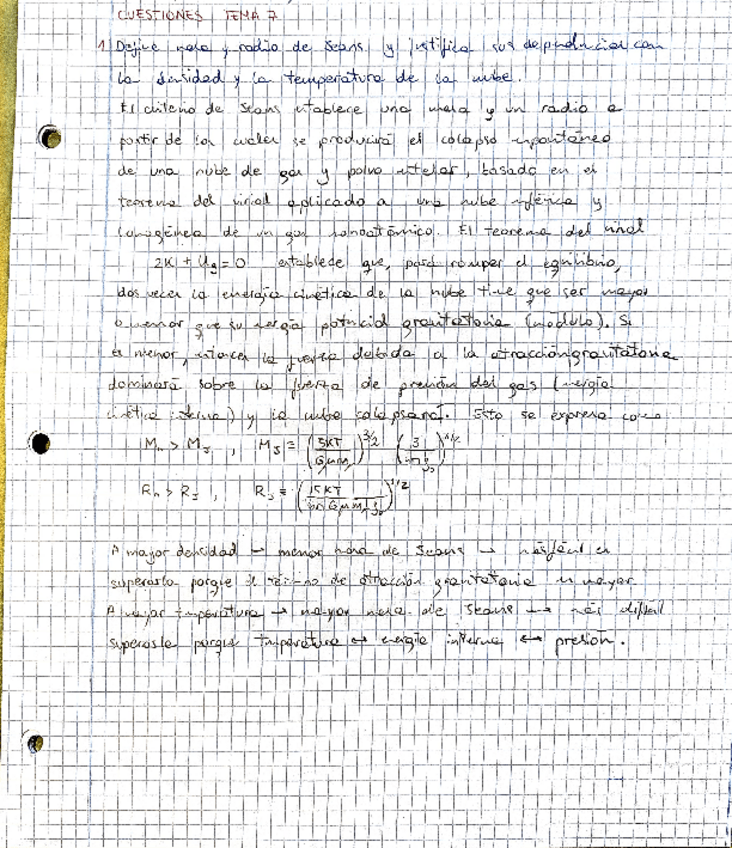 CUESTIONES TEMA 7
1 Define masa y radio de Jeans y justifica sus dependencias con
la densidad y la temperatura de la nube.
El criterio de Jeans establece una masa y un radio a
partir de los cuales se producirá el colapso espontáneo
de una nube de gas y polvo estelar, basado en el
teorema del virial aplicado a una nube esférica y
homogénea de un gas monoatómico. El teorema del virial
2K + Ug = 0 establece que, para romper el equilibrio,
dos veces la energía cinética de la nube tiene que ser mayor
o menor que su energía potencial gravitatoria (módulo). Si
es menor, entonces la fuerza debida a la atracción gravitatoria
dominará sobre la fuerza de presión del gas (energía
cinética interna) y la nube colapsará. Esto se expresa como
M > M_J , M_J = (5KT / Gμm)^{3/2} (3 / 4π)^{1/2}
R > R_J , R_J = (15KT / 4πGμm)^{1/2}
A mayor densidad → menor masa de Jeans → más fácil es
superarla porque el término de atracción gravitatoria es mayor.
A mayor temperatura → mayor masa de Jeans → más difícil
superarla porque temperatura ↔ energía interna ↔ presión.